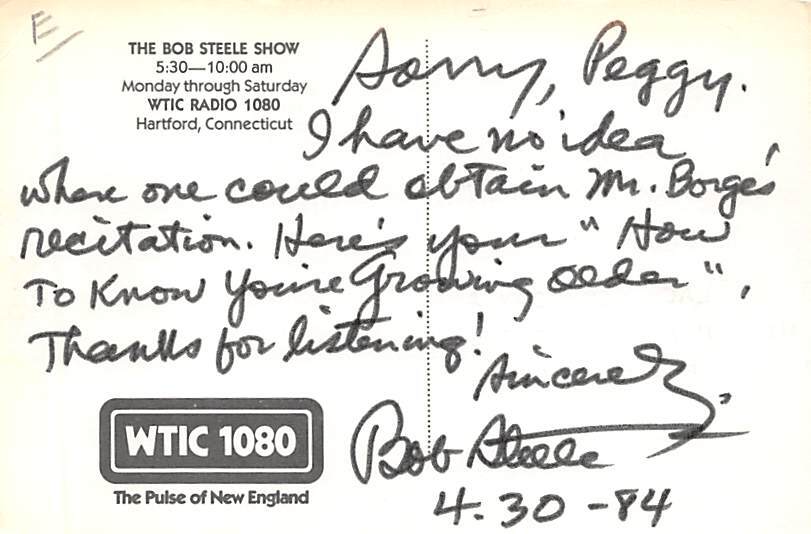 E
THE BOB STEELE SHOW
5:30—10:00 am
Monday through Saturday
WTIC RADIO 1080
Hartford, Connecticut
Sorry, Peggy.
I have no idea
where one could obtain Mr. Borge's
recitation. Here's your "How
To Know You're Growing Older",
Thanks for listening!
Sincerely,
Bob Steele
4.30-84
WTIC 1080
The Pulse of New England